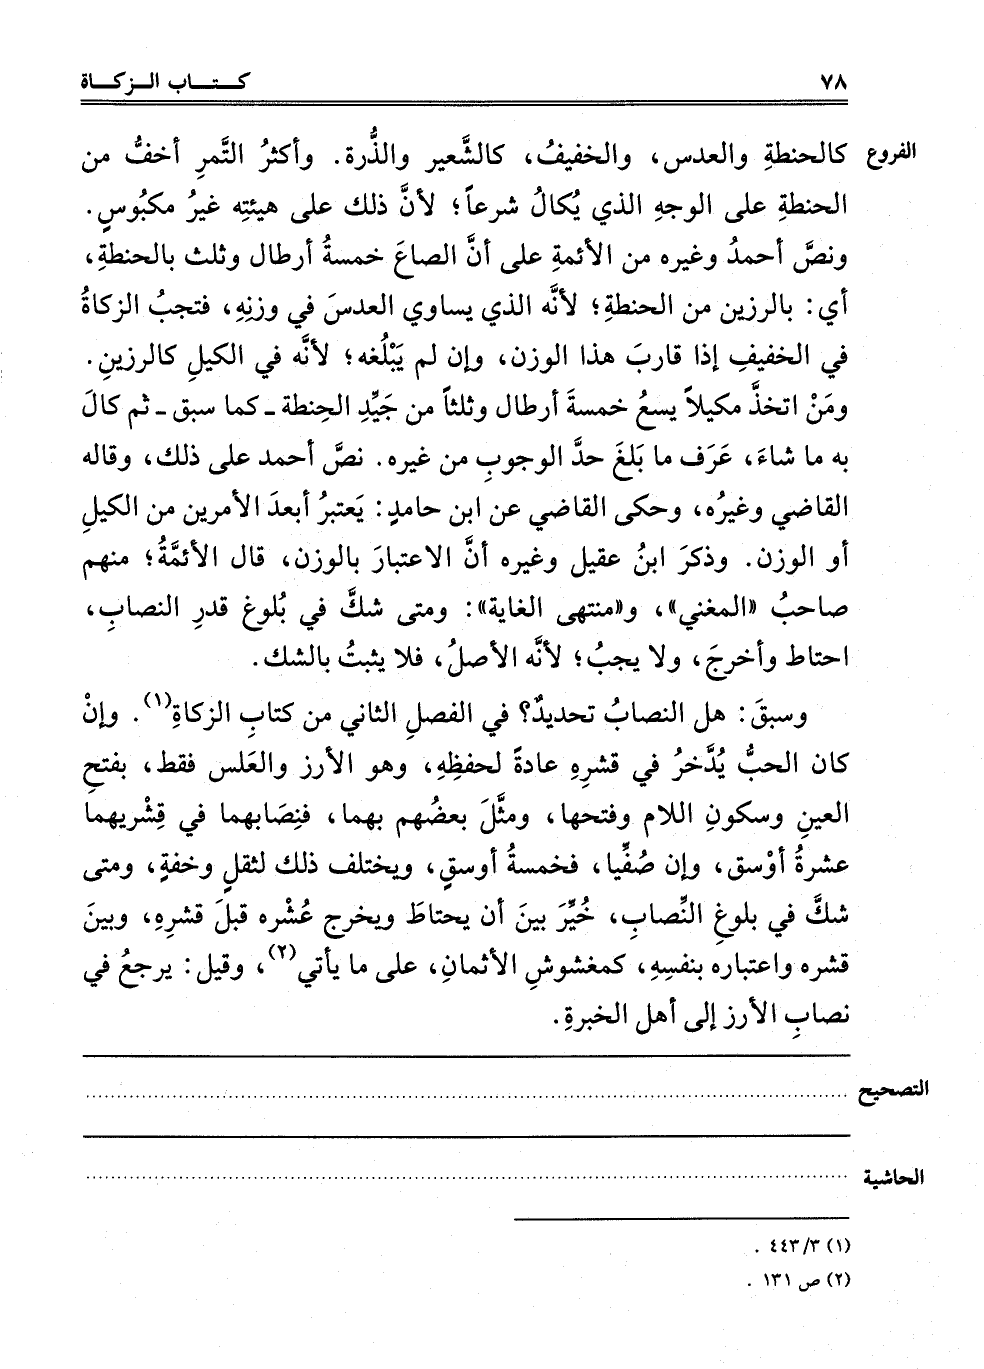 ٧٨
كـتـاب الـزكـاة
الفروع
كالحنطةِ والعدس، والخفيفُ، كالشَّعير والذُّرة. وأكثرُ التَّمرِ أخفُّ من
الحنطةِ على الوجهِ الذي يُكالُ شرعاً؛ لأنَّ ذلك على هيئتِه غيرُ مكبُوسٍ.
ونصَّ أحمدُ وغيره من الأئمةِ على أنَّ الصاعَ خمسةُ أرطال وثلث بالحنطةِ،
أي: بالرزين من الحنطةِ؛ لأنَّه الذي يساوي العدسَ في وزنِهِ، فتجبُ الزكاةُ
في الخفيفِ إذا قاربَ هذا الوزن، وإن لم يَبْلُغه؛ لأنَّه في الكيلِ كالرزينِ.
ومَنْ اتخذَّ مكيلاً يسعُ خمسةَ أرطال وثلثاً من جَيِّدِ الحِنطة ـ كما سبق ـ ثم كالَ
به ما شاءَ، عَرَف ما بَلَغَ حدَّ الوجوبِ من غيره. نصَّ أحمد على ذلك، وقاله
القاضي وغيرُه، وحكى القاضي عن ابن حامدٍ: يَعتبرُ أبعدَ الأمرين من الكيلِ
أو الوزن. وذكرَ ابنُ عقيل وغيره أنَّ الاعتبارَ بالوزن، قال الأئمَّةُ؛ منهم
صاحبُ «المغني»، و«منتهى الغاية»: ومتى شكَّ في بُلوغِ قدرِ النصابِ،
احتاط وأخرجَ، ولا يجبُ؛ لأنَّه الأصلُ، فلا يثبتُ بالشك.
وسبقَ: هل النصابُ تحديدٌ؟ في الفصلِ الثاني من كتابِ الزكاةِ(١). وإنْ
كان الحبُّ يُدَّخرُ في قشرِهِ عادةً لحفظِهِ، وهو الأرز والعَلس فقط، بفتحِ
العينِ وسكونِ اللام وفتحها، ومثَّلَ بعضُهم بهما، فنِصَابهما في قِشْريهما
عشرةُ أوْسق، وإن صُفِّيا، فخمسةُ أوسقٍ، ويختلف ذلك لثقلٍ وخفةٍ، ومتى
شكَّ في بلوغِ النِّصابِ، خُيِّرَ بينَ أن يحتاطَ ويخرج عُشْره قبلَ قشرِهِ، وبينَ
قشره واعتباره بنفسِهِ، كمغشوشِ الأثمانِ، على ما يأتي(٢)، وقيل: يرجعُ في
نصابِ الأرز إلى أهل الخبرةِ.
التصحيح
الحاشية
(١) ٤٤٣/٣ .
(٢) ص ١٣١ .